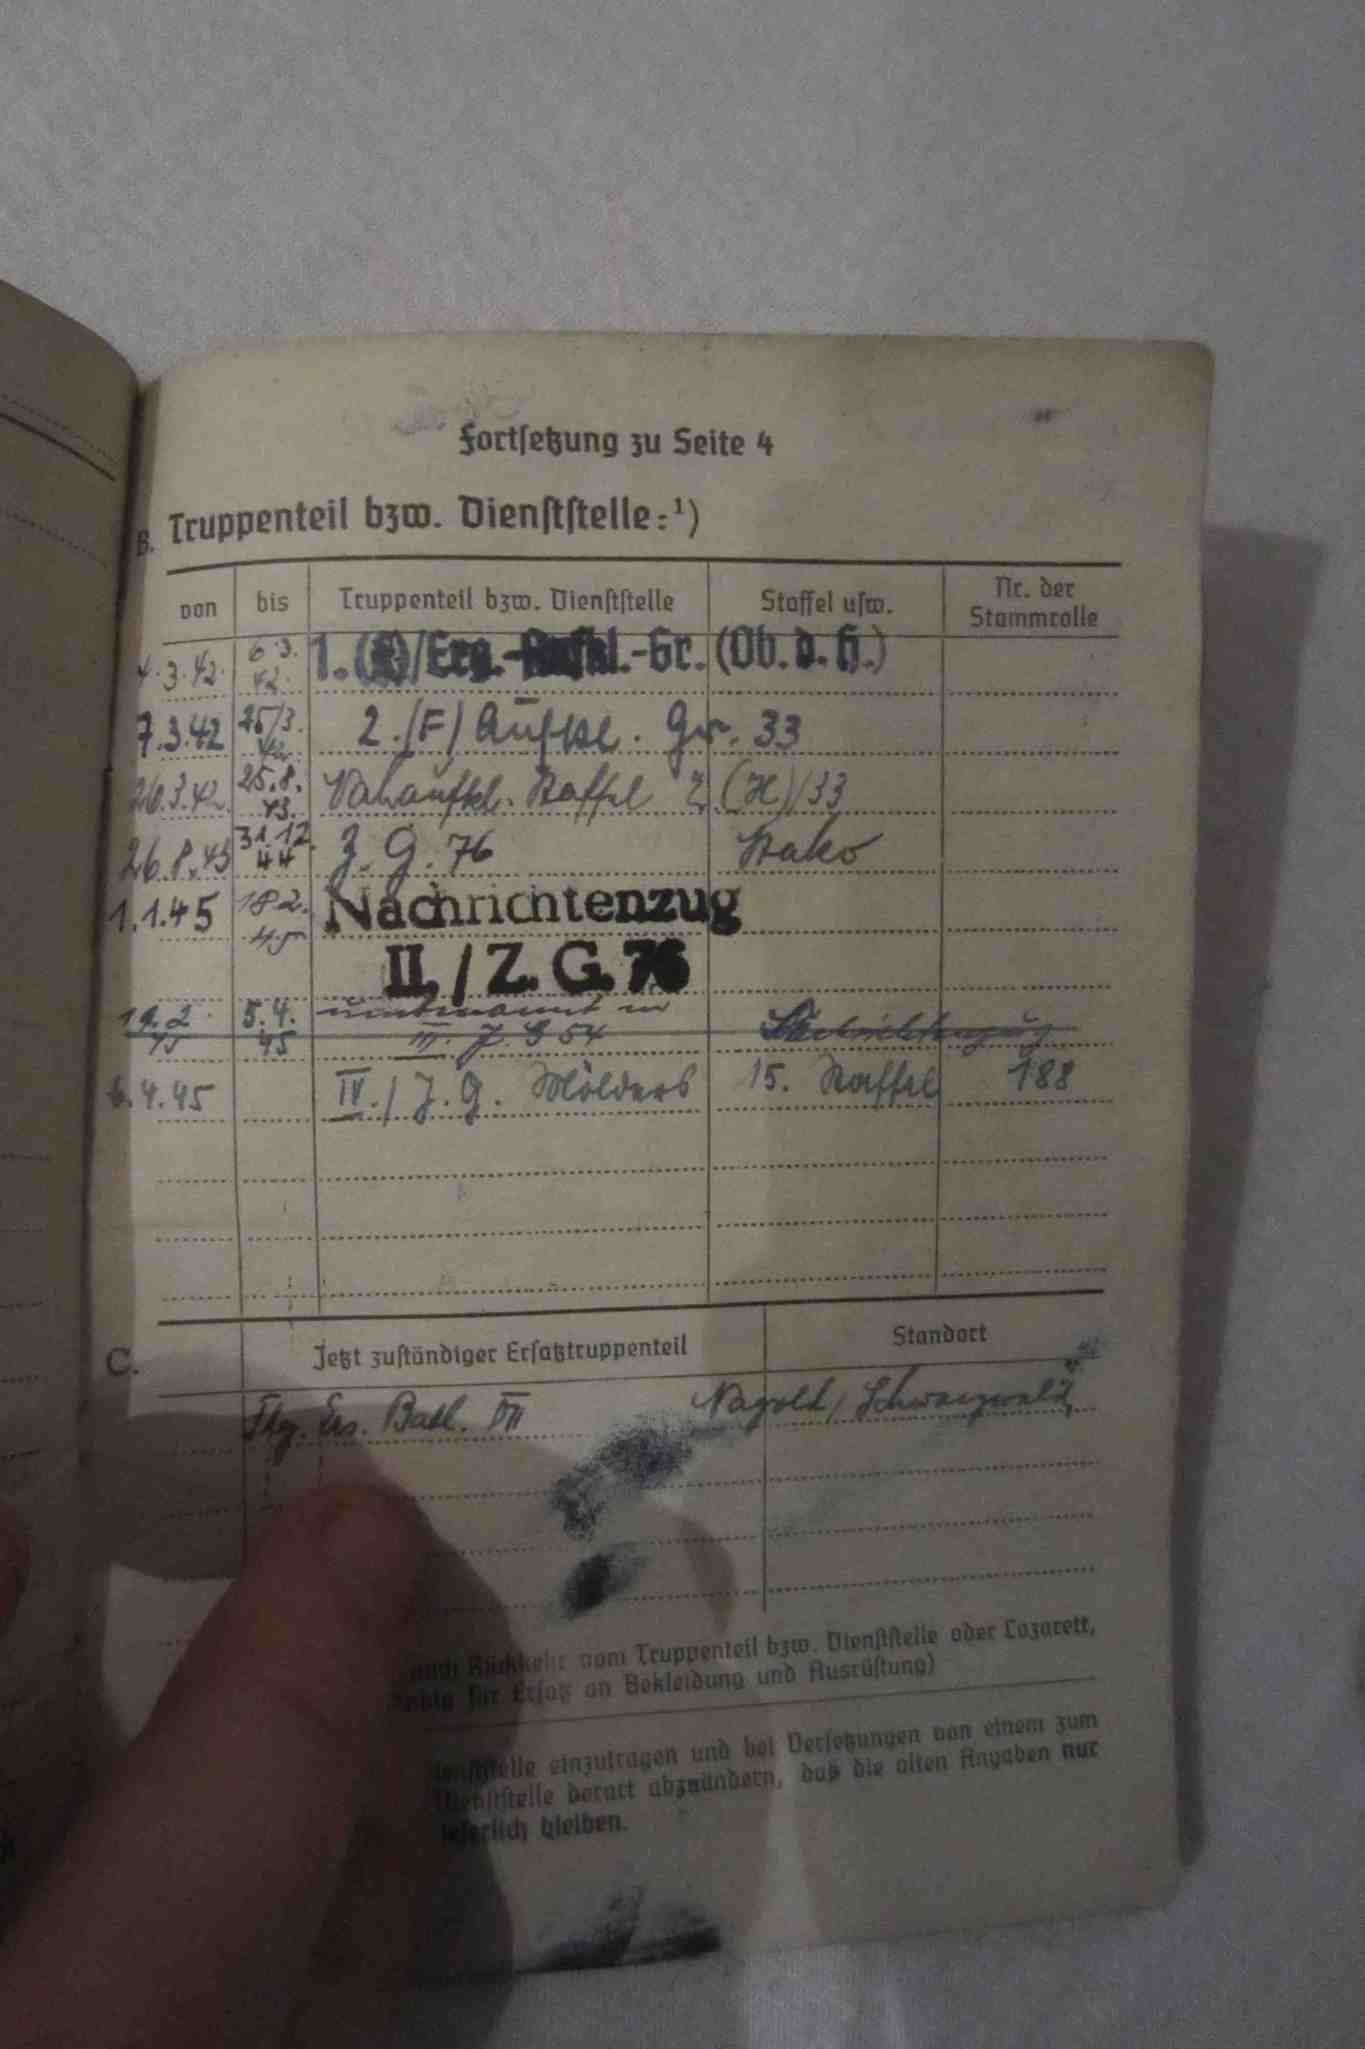 Fortsetzung zu Seite 4
B. Truppenteil bzw. Dienststelle:¹)
von bis Truppenteil bzw. Dienststelle Staffel usw. Nr. der Stammrolle
4.3.42. 6.3.42. 1. (F)/Erg.-Aufkl.-Gr. (Ob. d. H.)
7.3.42 25/3.42 2.(F) Aufkl. Gr. 33
26.3.42. 25.8.43. Nahaufkl. Staffel 2 (H)/33
26.8.43 31.12.44 Z. G. 76 Stako
1.1.45 18.2.45 Nachrichtenzug
II./Z. G. 76
19.2.45 5.4.45 umbenannt in
III. J. G 54 Nachrichtenzug
6.4.45 IV./J. G. Mölders 15. Staffel 188
C. Jetzt zuständiger Ersatztruppenteil Standort
Flieg. Ers. Batl. VII Nagold/Schwarzwald
nach Rückkehr vom Truppenteil bzw. Dienststelle oder Lazarett,
für Ersatz an Bekleidung und Ausrüstung)
einzutragen und bei Versetzungen von einem zum
Dienststelle derart abzuändern, daß die alten Angaben nur
leserlich bleiben.